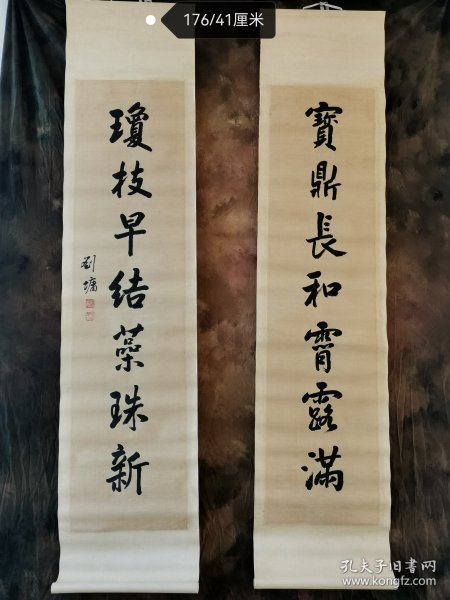 176/41厘米
寶鼎長和霄露滿
瓊枝早結蕊珠新
劉墉
孔夫子旧书网
www.kongfz.com